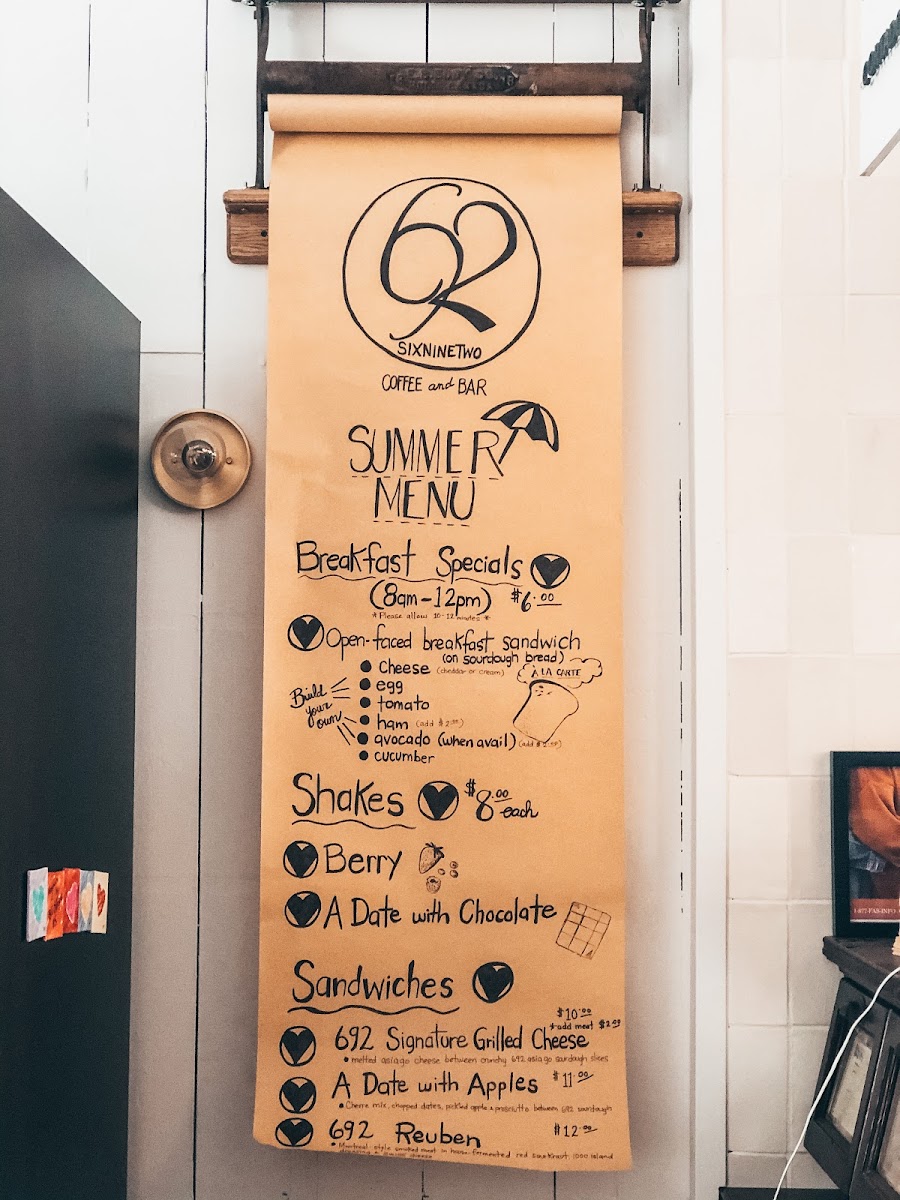 692
SIXNINETWO
COFFEE and BAR
SUMMER
MENU
Breakfast Specials
(8am-12pm) $6.00
*Please allow 10-12 minutes*
Open-faced breakfast sandwich
(on sourdough bread)
À LA CARTE
Build your own
Cheese (cheddar or cream)
egg
tomato
ham (add $2.00)
avocado (when avail) (add $2.00)
cucumber
Shakes $8.00 each
Berry
A Date with Chocolate
Sandwiches
$10.00
*add meat $2.00
692 Signature Grilled Cheese
melted asiago cheese between crunchy 692 asiago sourdough slices
A Date with Apples $11.00
Chevre mix, chopped dates, pickled apple & prosciutto between 692 sourdough
692 Reuben $12.00
Montreal-style smoked meat in house fermented red sauerkraut 1000 island
dressing & swiss cheese
1-877-FAB-INFO